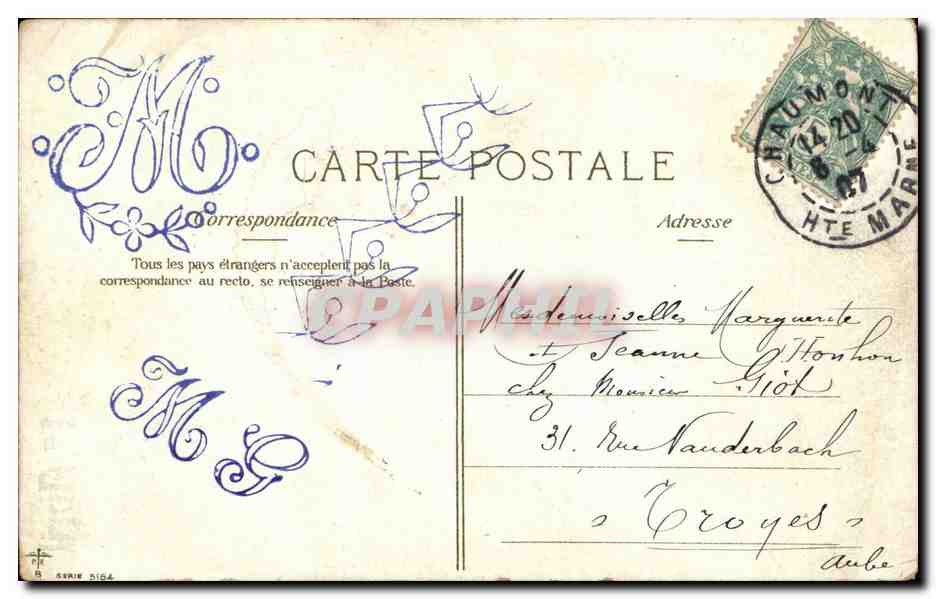 M
CARTE POSTALE
Correspondance
Tous les pays étrangers n'acceptent pas la
correspondance au recto, se renseigner à la Poste.
M G
SERIE 5164
Adresse
CHAUMONT
14 20
6 -4
07
HTE MARNE
CPAPHIL
Mesdemoiselles Marguerite
et Jeanne
chez Monsieur Giot
31. Rue Vanderbach
" Troyes "
Aube